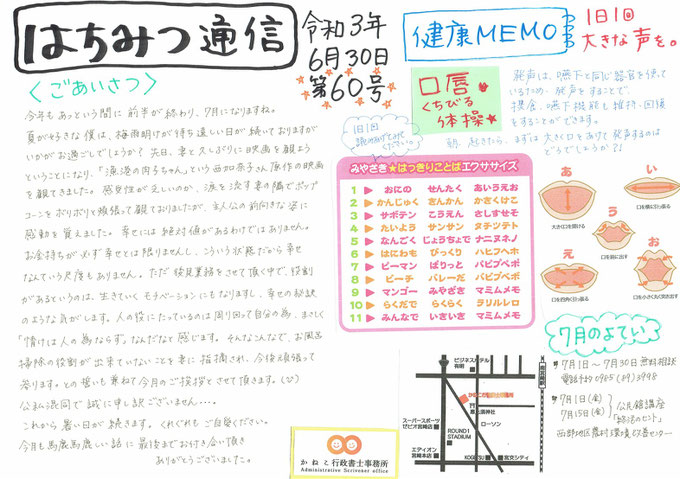 はちみつ通信
令和3年
6月30日
第60号
<ごあいさつ>
今年もあっという間に前半が終わり、7月になりますね。
夏が好きな僕は、梅雨明けが待ち遠しい日が続いておりますが
いかがお過ごしでしょうか? 先日、妻と久しぶりに映画を観よう
ということになり、「漁港の肉子ちゃん」という西加奈子さん原作の映画
を観てきました。感受性が乏しいのか、涙を流す妻の隣でポップ
コーンをボリボリと頬張って観ておりましたが、主人公の前向きな姿に
感動を覚えました。幸せには絶対値があるわけではありません。
お金持ちが必ず幸せとは限りませんし、こういう状態だから幸せ
なんていう尺度もありません。ただ後見業務をさせて頂く中で、役割
があるというのは、生きていくモチベーションにもなりますし、幸せの秘訣
のような気がします。人の役にたっているのは周り回って自分の為、まさしく
「情けは人の為ならず」なんだなと感じます。そんなこんなで、お風呂
掃除の役割が出来ていないことを妻に指摘され、今後頑張って
参ります。との誓いも兼ねて今月のご挨拶とさせて頂きます。
公私混同で誠に申し訳ございません…。
これから暑い日が続きます。くれぐれもご自愛ください。
今月も馬鹿馬鹿しい話に最後までお付き合い頂き
ありがとうございました。
健康MEMO
1日1回
大きな声を。
口唇
くちびる
体操
発声は、嚥下と同じ器官を使っ
ているため、発声をすることで、
摂食、嚥下機能も維持・回復
をすることができます。
朝、起きたら、まずは大きく口をあけて発声するのは
どうでしょうか?!
1日1回
読みあげてみて
ください。
みやざき★はっきりことばエクササイズ
1 ▶ おにの せんたく あいうえお
2 ▶ かんじゅく きんかん かきくけこ
3 ▶ サボテン こうえん さしすせそ
4 ▶ たいよう サンサン タチツテト
5 ▶ なんごく じょうちょで ナニヌネノ
6 ▶ はにわも びっくり ハヒフヘホ
7 ▶ ピーマン ぱりっと パピプペポ
8 ▶ ビーチ バレーだ バビブベボ
9 ▶ マンゴー みやざき マミムメモ
10 ▶ らくだで らくらく ラリルレロ
11 ▶ みんなで いきいき マミムメモ
あ
大きく口を開ける
い
口を横に引っ張る
う
口を前に出す
え
口を四角く引っ張る
お
口を小さく丸く突き出す
7月のよてい
7月1日〜7月30日無料相談
7月1日(金)
7月15日(金)
公民館講座
「終活のヒント」
西部地区農村環境改善センター
ビジネスホテル
有明
ローソン
スーパースポーツ
ゼビオ宮崎店
ROUND1
STADIUM
エディオン
宮崎本店
宮交シティ
南宮崎駅
かねこ行政書士事務所
Administrative Scrivener office